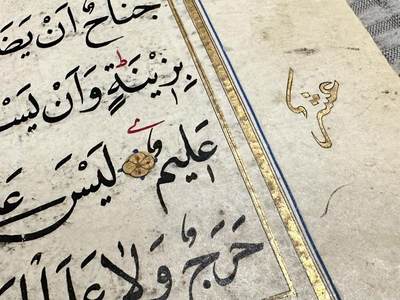 جُنَاحٌ اَنْ يَضَ
بِزِينَةٍ وَاَنْ يَسْ
عَلِيمٌ لَيْسَ عَ
حَرَجٌ وَلَا
عشر